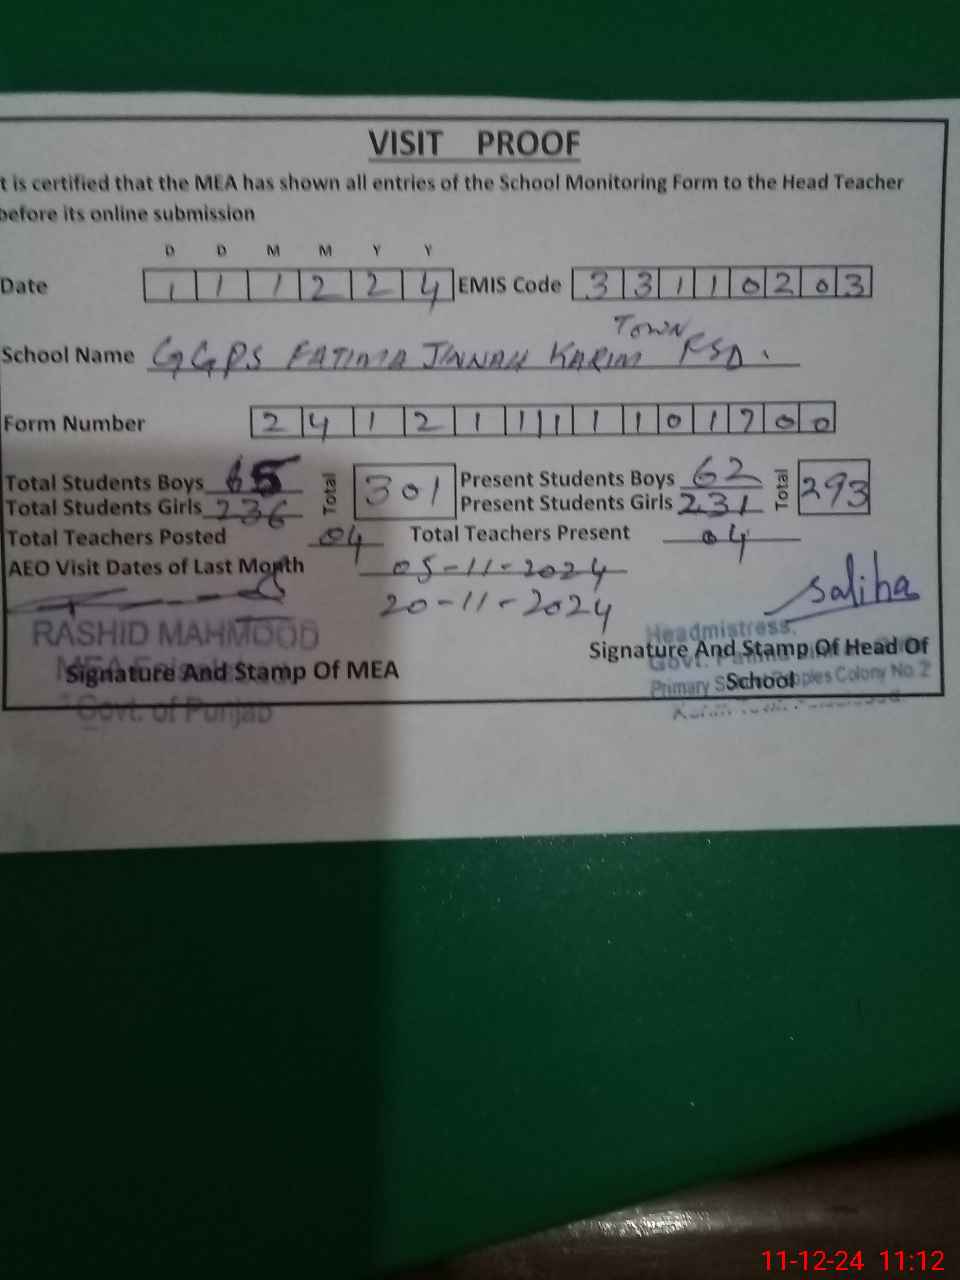 VISIT PROOF
t is certified that the MEA has shown all entries of the School Monitoring Form to the Head Teacher
before its online submission
D D M M Y Y
Date 1 1 1 2 2 4 EMIS Code 3 3 1 1 0 2 0 3
School Name GGPS FATIMA JINNAH KARIM TOWN FSD.
Form Number 2 4 1 2 1 1 1 1 1 1 0 1 7 0 0
Total Students Boys 65 Total 301 Present Students Boys 62 Total 293
Total Students Girls 236 Present Students Girls 231
Total Teachers Posted 04 Total Teachers Present 04
AEO Visit Dates of Last Month 05-11-2024
20-11-2024
saliha
RASHID MAHMOOD
Headmistress.
Signature And Stamp Of MEA
Signature And Stamp Of Head Of
School
Govt.
Primary S ples Colony No.2
Govt. of Punjab
11-12-24 11:12